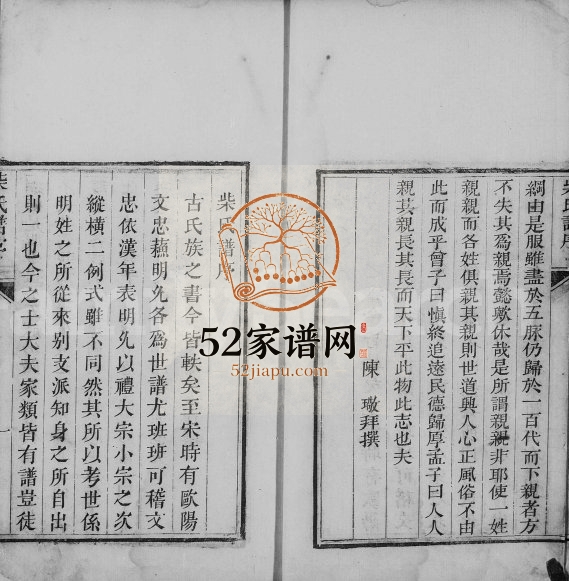 綱由是服雖盡於五脉仍歸於一百代而下親者方
不失其爲親焉懿歟休哉是所謂親親非耶使一姓
親親而各姓俱親其親則世道興人心正風俗不由
此而成乎曾子曰愼終追遠民德歸厚孟子曰人人
親其親長其長而天下平此物此志也夫
陳 璥拜撰
柴氏譜序
古氏族之書今皆軼矣至宋時有歐陽
文忠蘓明允各爲世譜尤班班可稽文
忠依漢年表明允以禮大宗小宗之次
縱橫二例式雖不同然其所以考世係
明姓之所從來別支派知身之所自出
則一也今之士大夫家類皆有譜豈徒
52家谱网
52jiapu.com